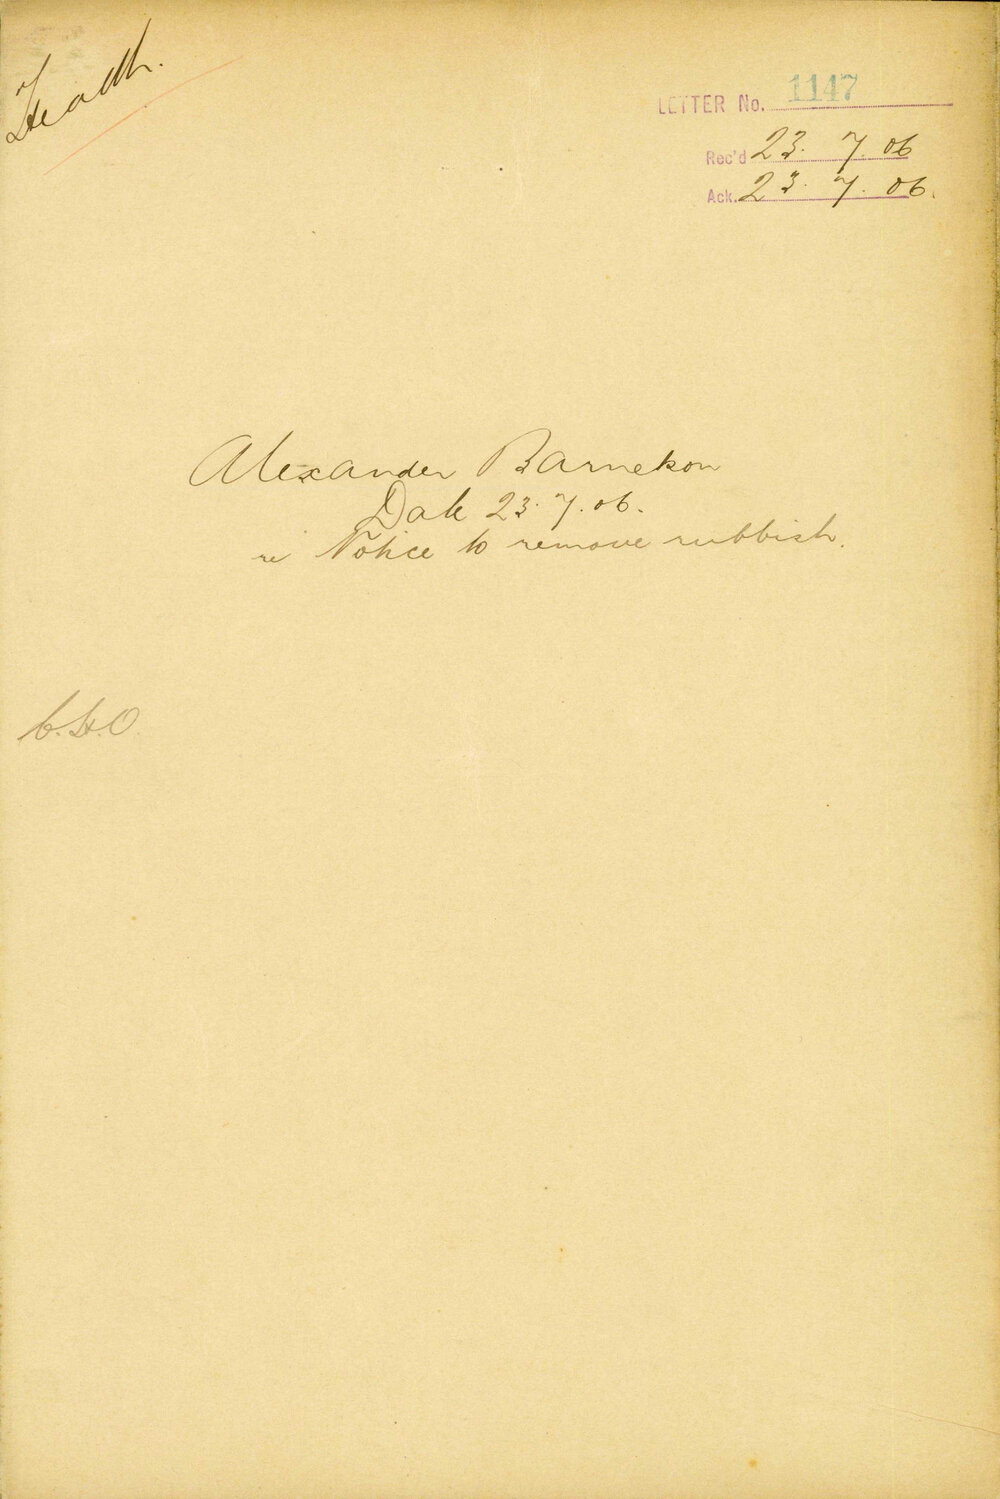 Health.
LETTER No. 1147
Rec'd 23. 7. 06
Ack. 23. 7. 06.
Alexander Barnekson
Date 23. 7. 06.
re Notice to remove rubbish.
C.H.O.